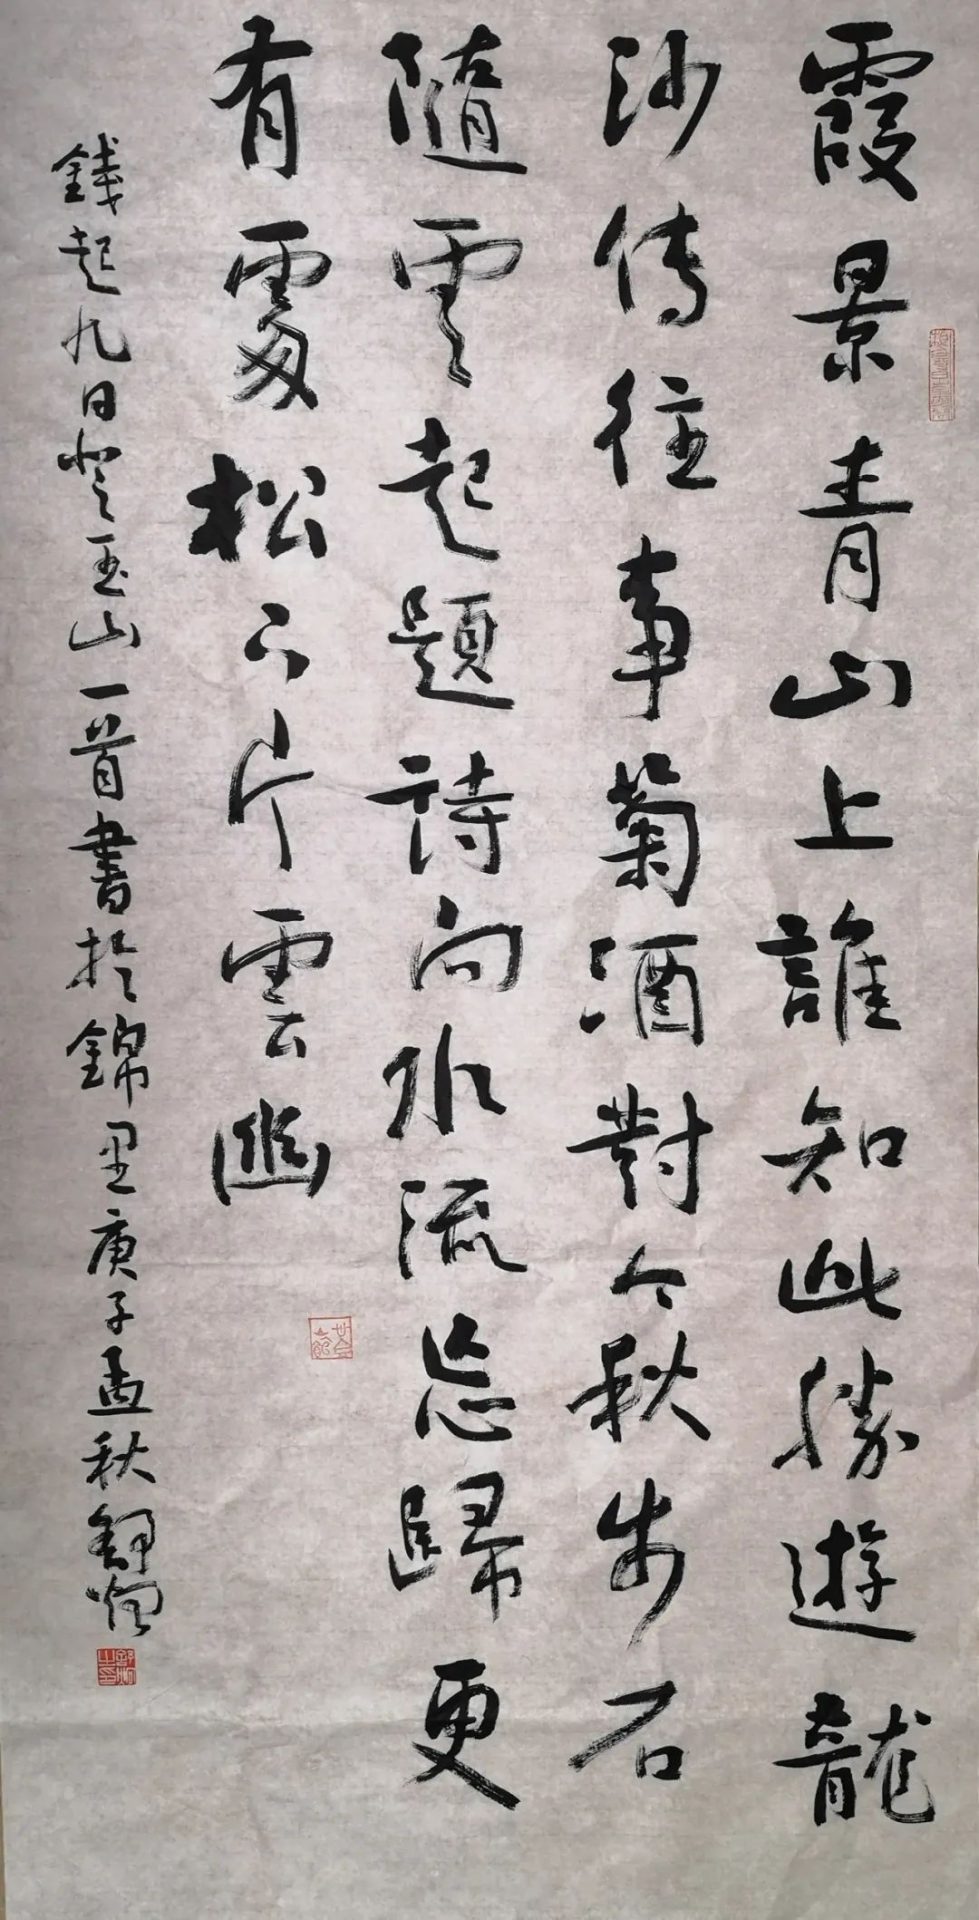 霞景青山上誰知此勝遊龍
沙傳往事菊酒對今秋步石
隨雲起題詩向水流忘歸更
有處松下片雲幽
錢起九日登玉山一首書於錦里庚子孟秋舒炯